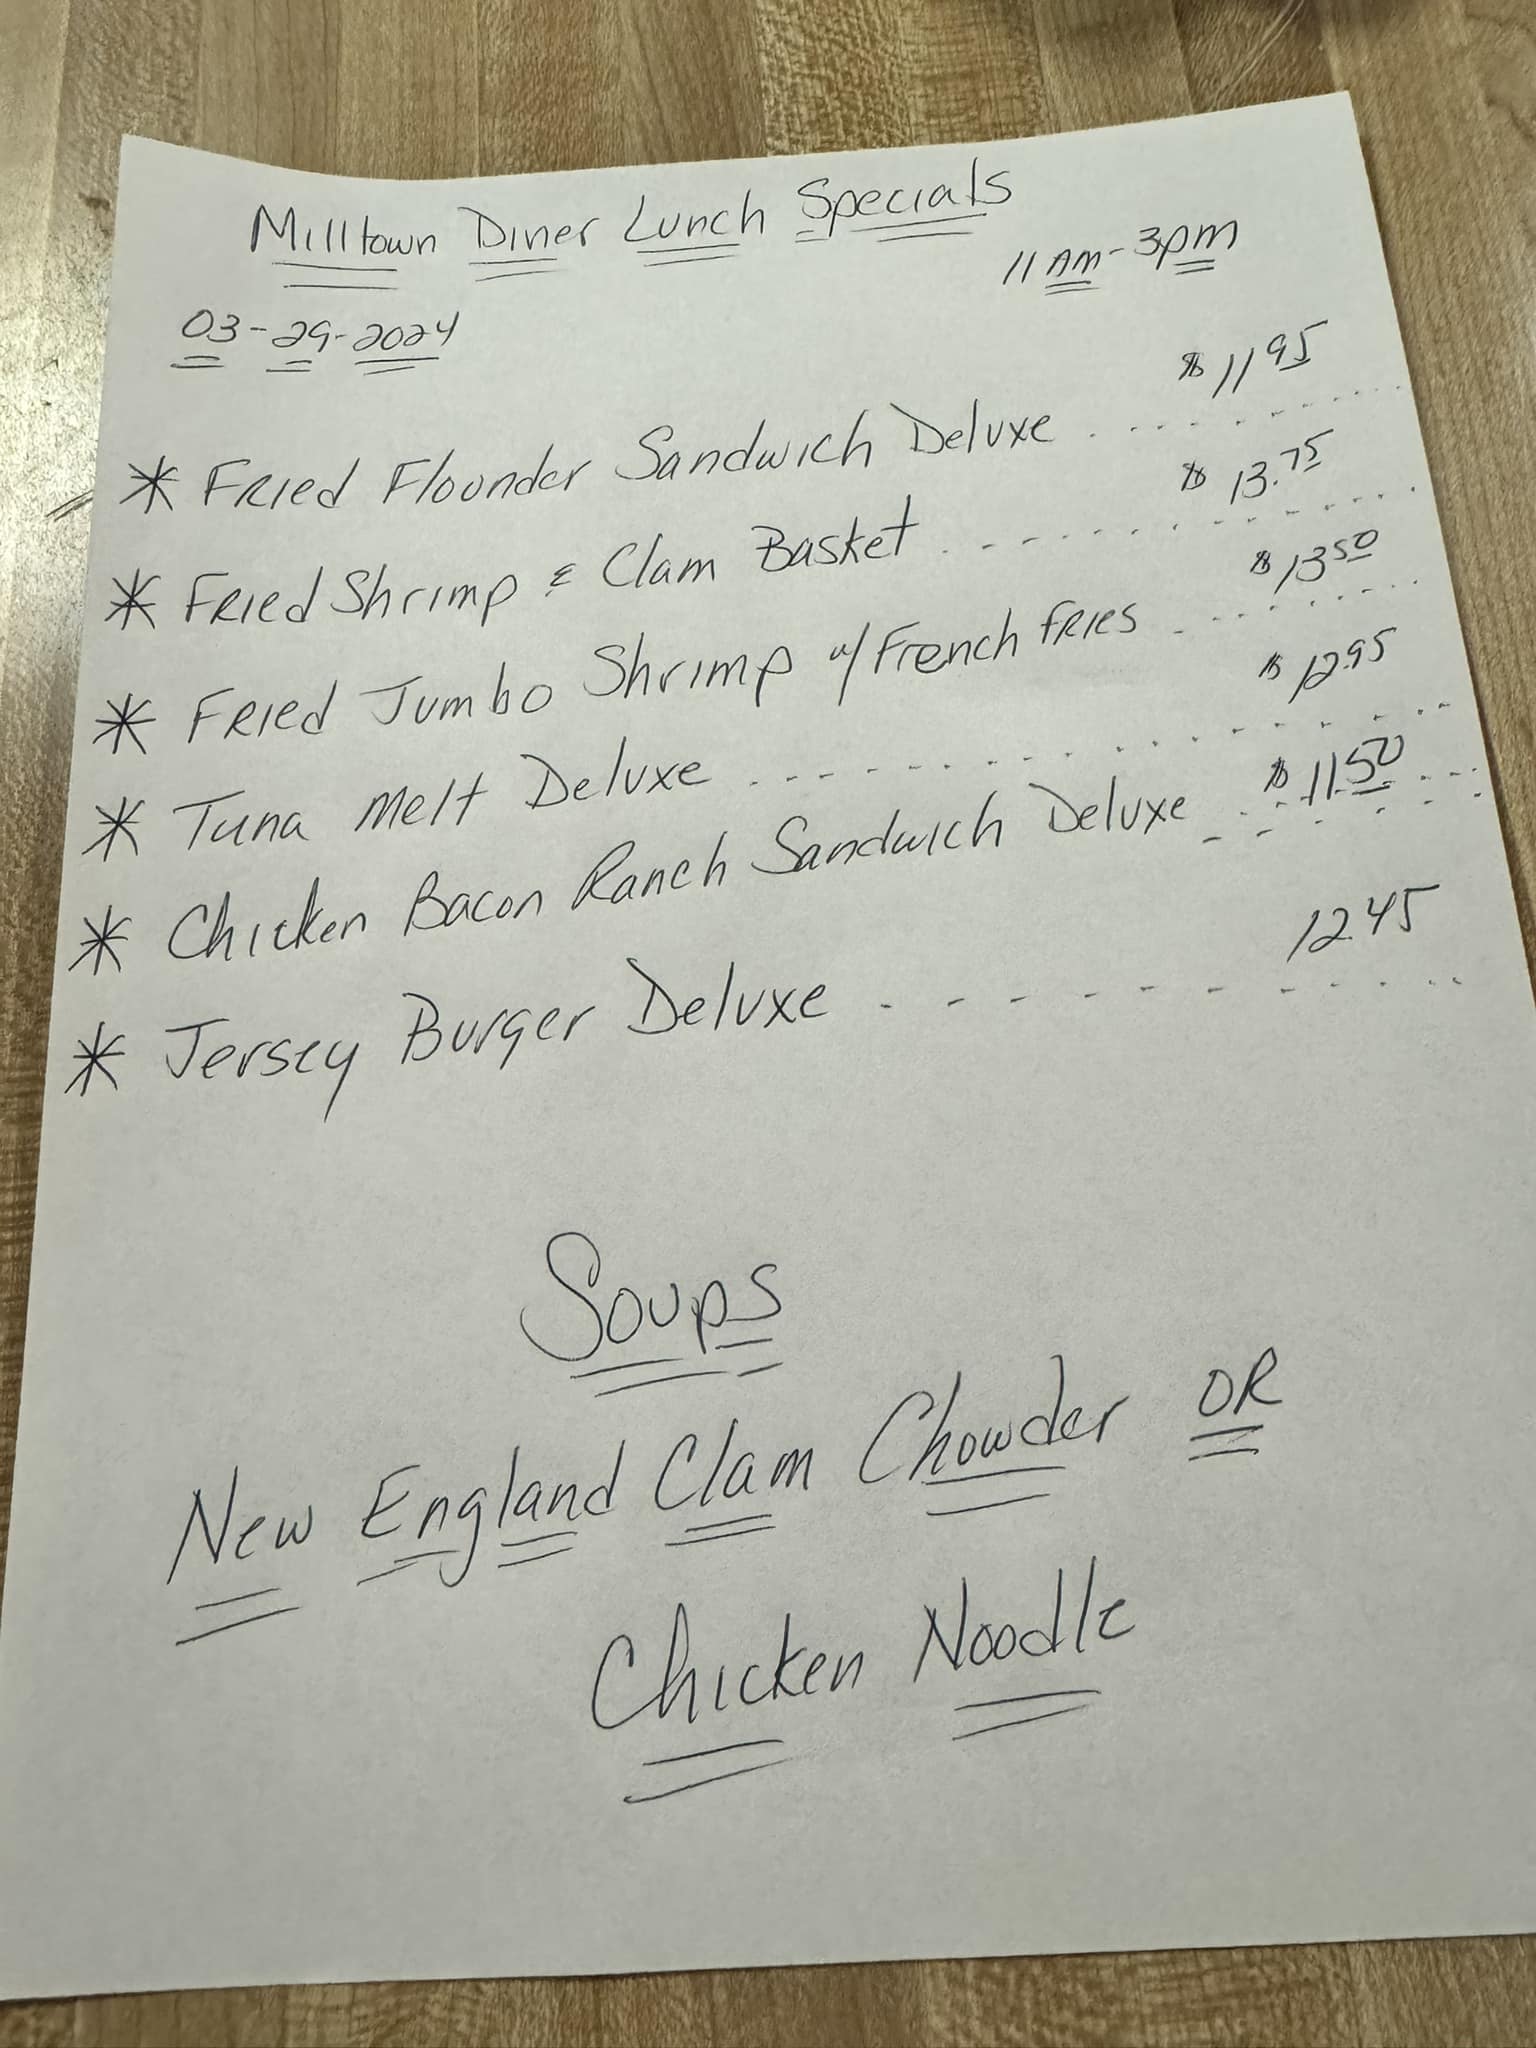 Milltown Diner Lunch Specials
11 AM - 3pm
03-29-2024
* Fried Flounder Sandwich Deluxe ........ $11 95
* Fried Shrimp & Clam Basket ........ $13.75
* Fried Jumbo Shrimp w/ French fries ........ $13 50
* Tuna Melt Deluxe ........ $12.95
* Chicken Bacon Ranch Sandwich Deluxe ........ $11.50
* Jersey Burger Deluxe ........ 12.45
Soups
New England Clam Chowder OR
Chicken Noodle